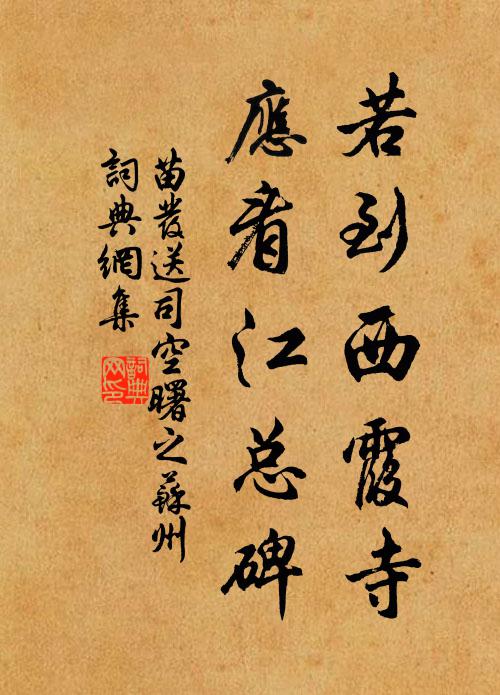 若到西霞寺
應看江总碑
苗發送司空曙之蘇州
詞典網集
詞典
网印